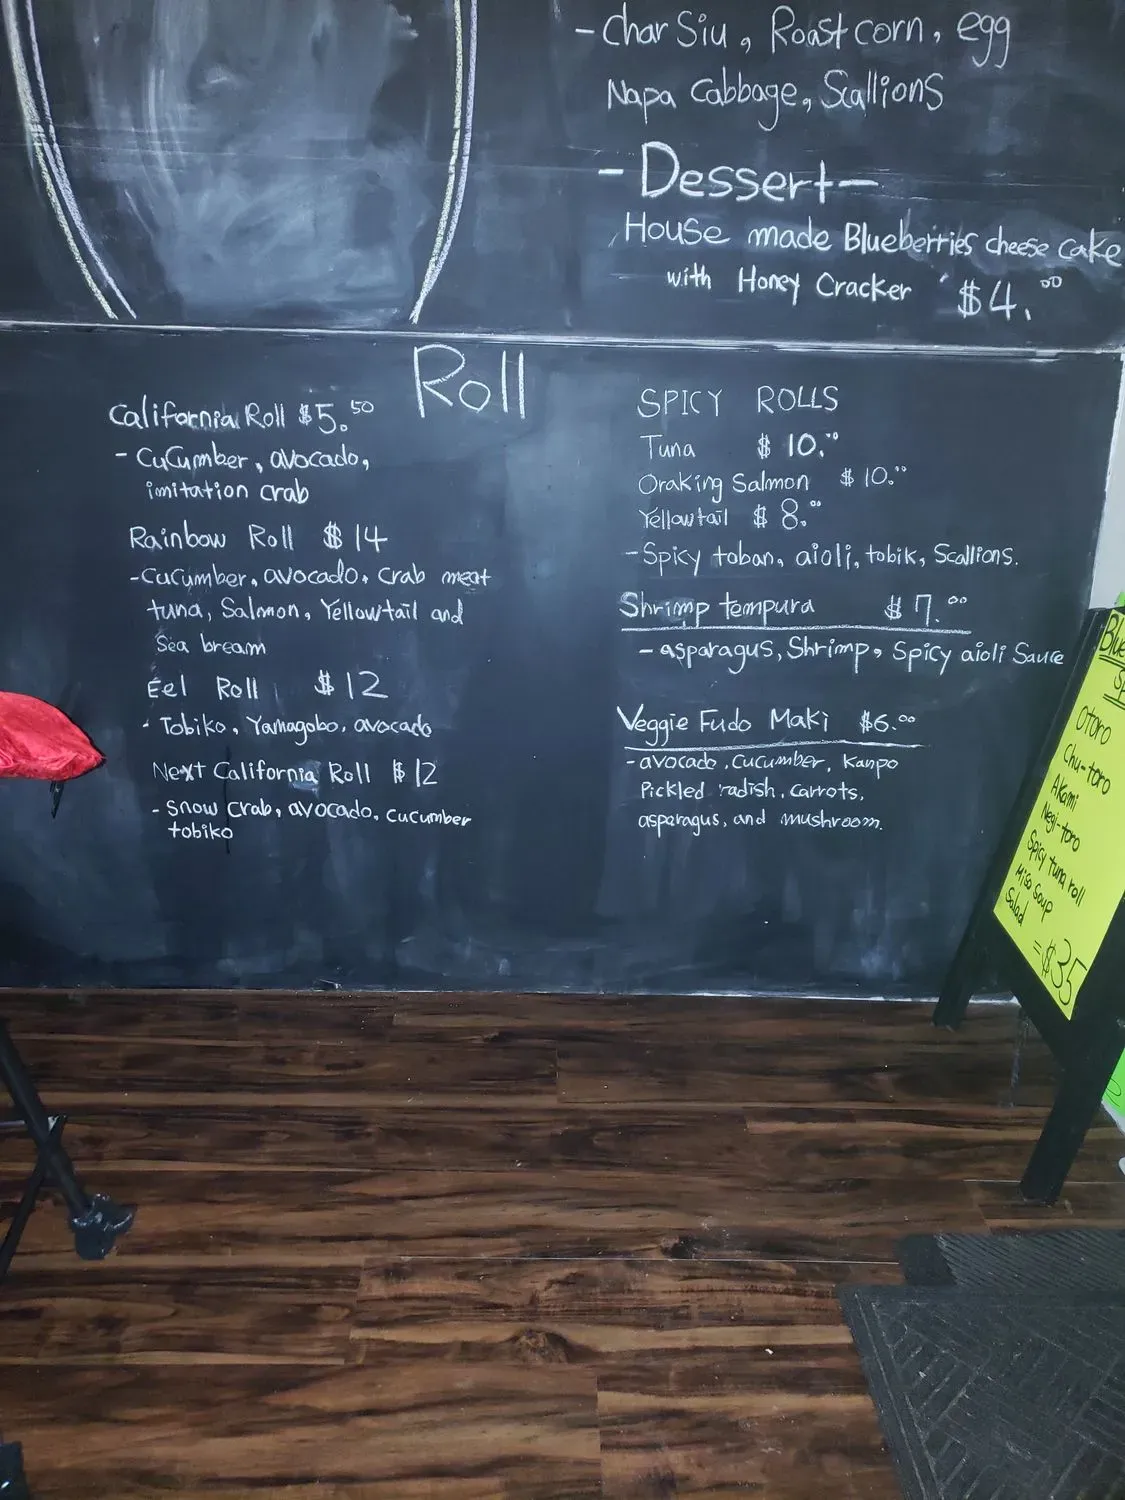 - Char Siu, Roast corn, egg
Napa Cabbage, Scallions
- Dessert -
House made Blueberries cheese cake
with Honey Cracker $4.00
Roll
California Roll $5.50
- Cucumber, avocado,
imitation crab
Rainbow Roll $14
- Cucumber, avocado, Crab meat
tuna, Salmon, Yellowtail and
Sea bream
Eel Roll $12
- Tobiko, Yamagobo, avocado
Next California Roll $12
- Snow Crab, avocado, cucumber
tobiko
SPICY ROLLS
Tuna $10.00
Oraking Salmon $10.00
Yellowtail $8.00
- Spicy toban, aioli, tobik, Scallions.
Shrimp tempura $7.00
- asparagus, Shrimp, Spicy aioli Sauce
Veggie Fudo Maki $6.00
- avocado, cucumber, Kanpo
Pickled radish, carrots,
asparagus, and mushroom.
Otoro
Chu-toro
Akami
Negi-toro
Spicy tuna roll
Miso Soup
Salad
= $35